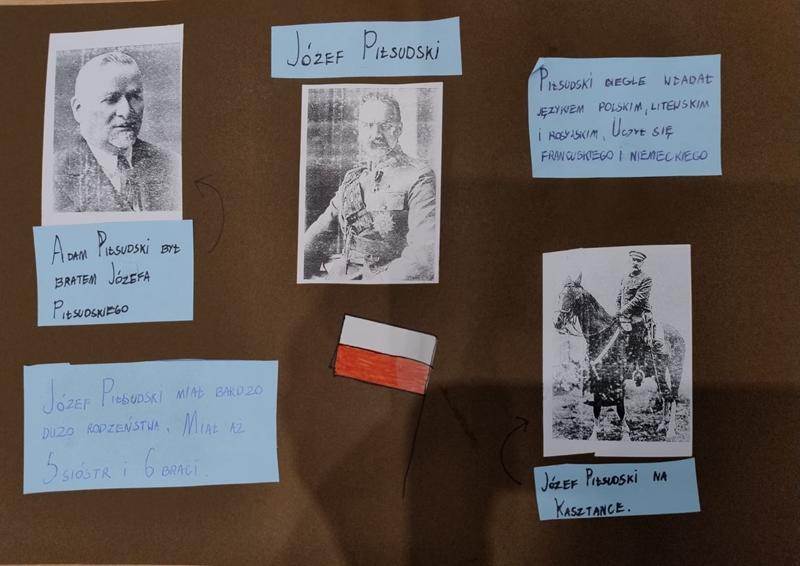 JÓZEF PIŁSUDSKI
ADAM PIŁSUDSKI BYŁ
BRATEM JÓZEFA
PIŁSUDSKIEGO
PIŁSUDSKI BIEGLE WŁADAŁ
JĘZYKIEM POLSKIM, LITEWSKIM
I ROSYJSKIM, UCZYŁ SIĘ
FRANCUSKIEGO I NIEMECKIEGO
JÓZEF PIŁSUDSKI MIAŁ BARDZO
DUŻO RODZEŃSTWA. MIAŁ AŻ
5 SIÓSTR I 6 BRACI.
JÓZEF PIŁSUDSKI NA
KASZTANCE.